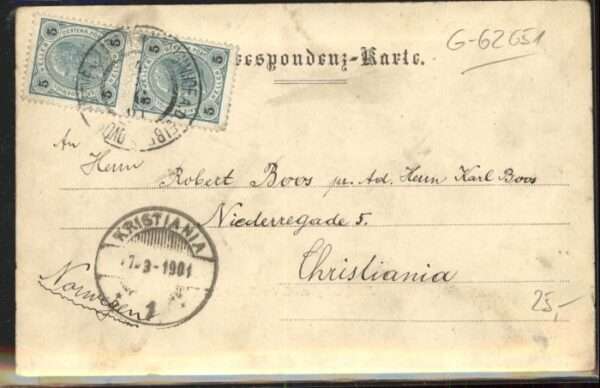 5 5 5 5
respondenz-Karte.
G-62651
An
Herrn Robert Boos pr. Ad. Herrn Karl Boos
Niederregade 5.
Christiania
Norwegen
KRISTIANIA
7-3-1901
1
25,-